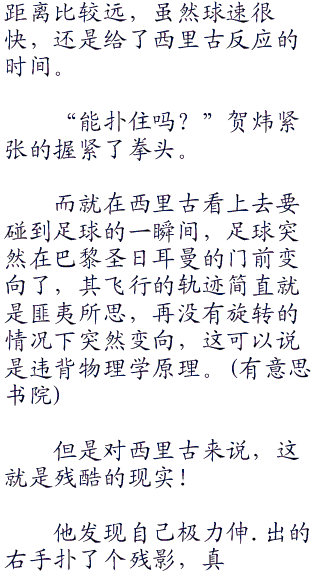 距离比较远，虽然球速很
快，还是给了西里古反应的
时间。
“能扑住吗？”贺炜紧
张的握紧了拳头。
而就在西里古看上去要
碰到足球的一瞬间，足球突
然在巴黎圣日耳曼的门前变
向了，其飞行的轨迹简直就
是匪夷所思，再没有旋转的
情况下突然变向，这可以说
是违背物理学原理。(有意思
书院)
但是对西里古来说，这
就是残酷的现实！
他发现自己极力伸.出的
右手扑了个残影，真